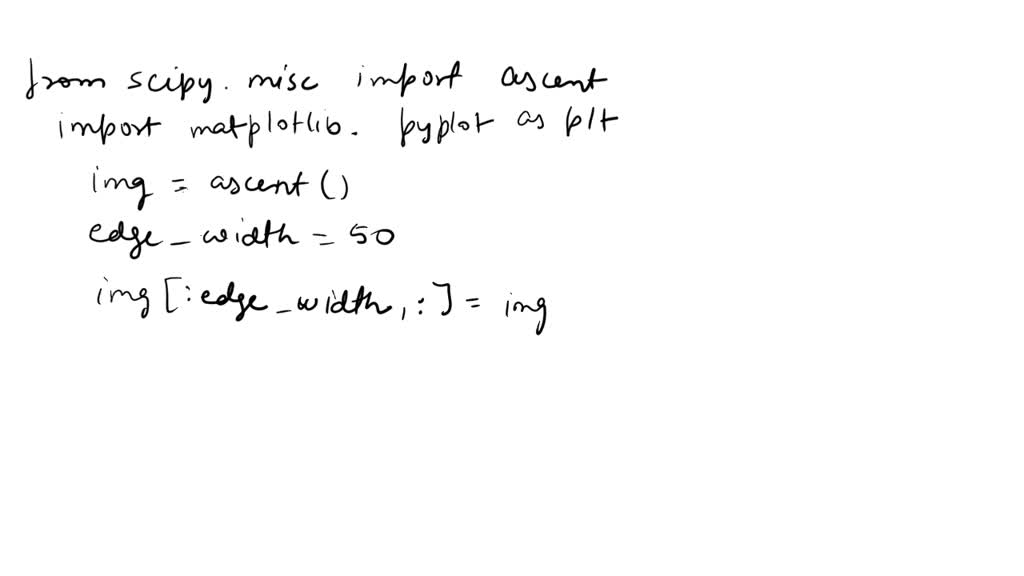 from scipy. misc import ascent
import matplotlib. pyplot as plt
img = ascent()
edge_width = 50
img[:edge_width,:] = img